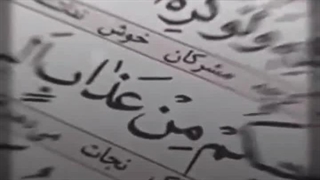 وَلَوْ كَرِهَ
مشرکان خوش
كُمْ مِنْ عَذَابٍ
نجات